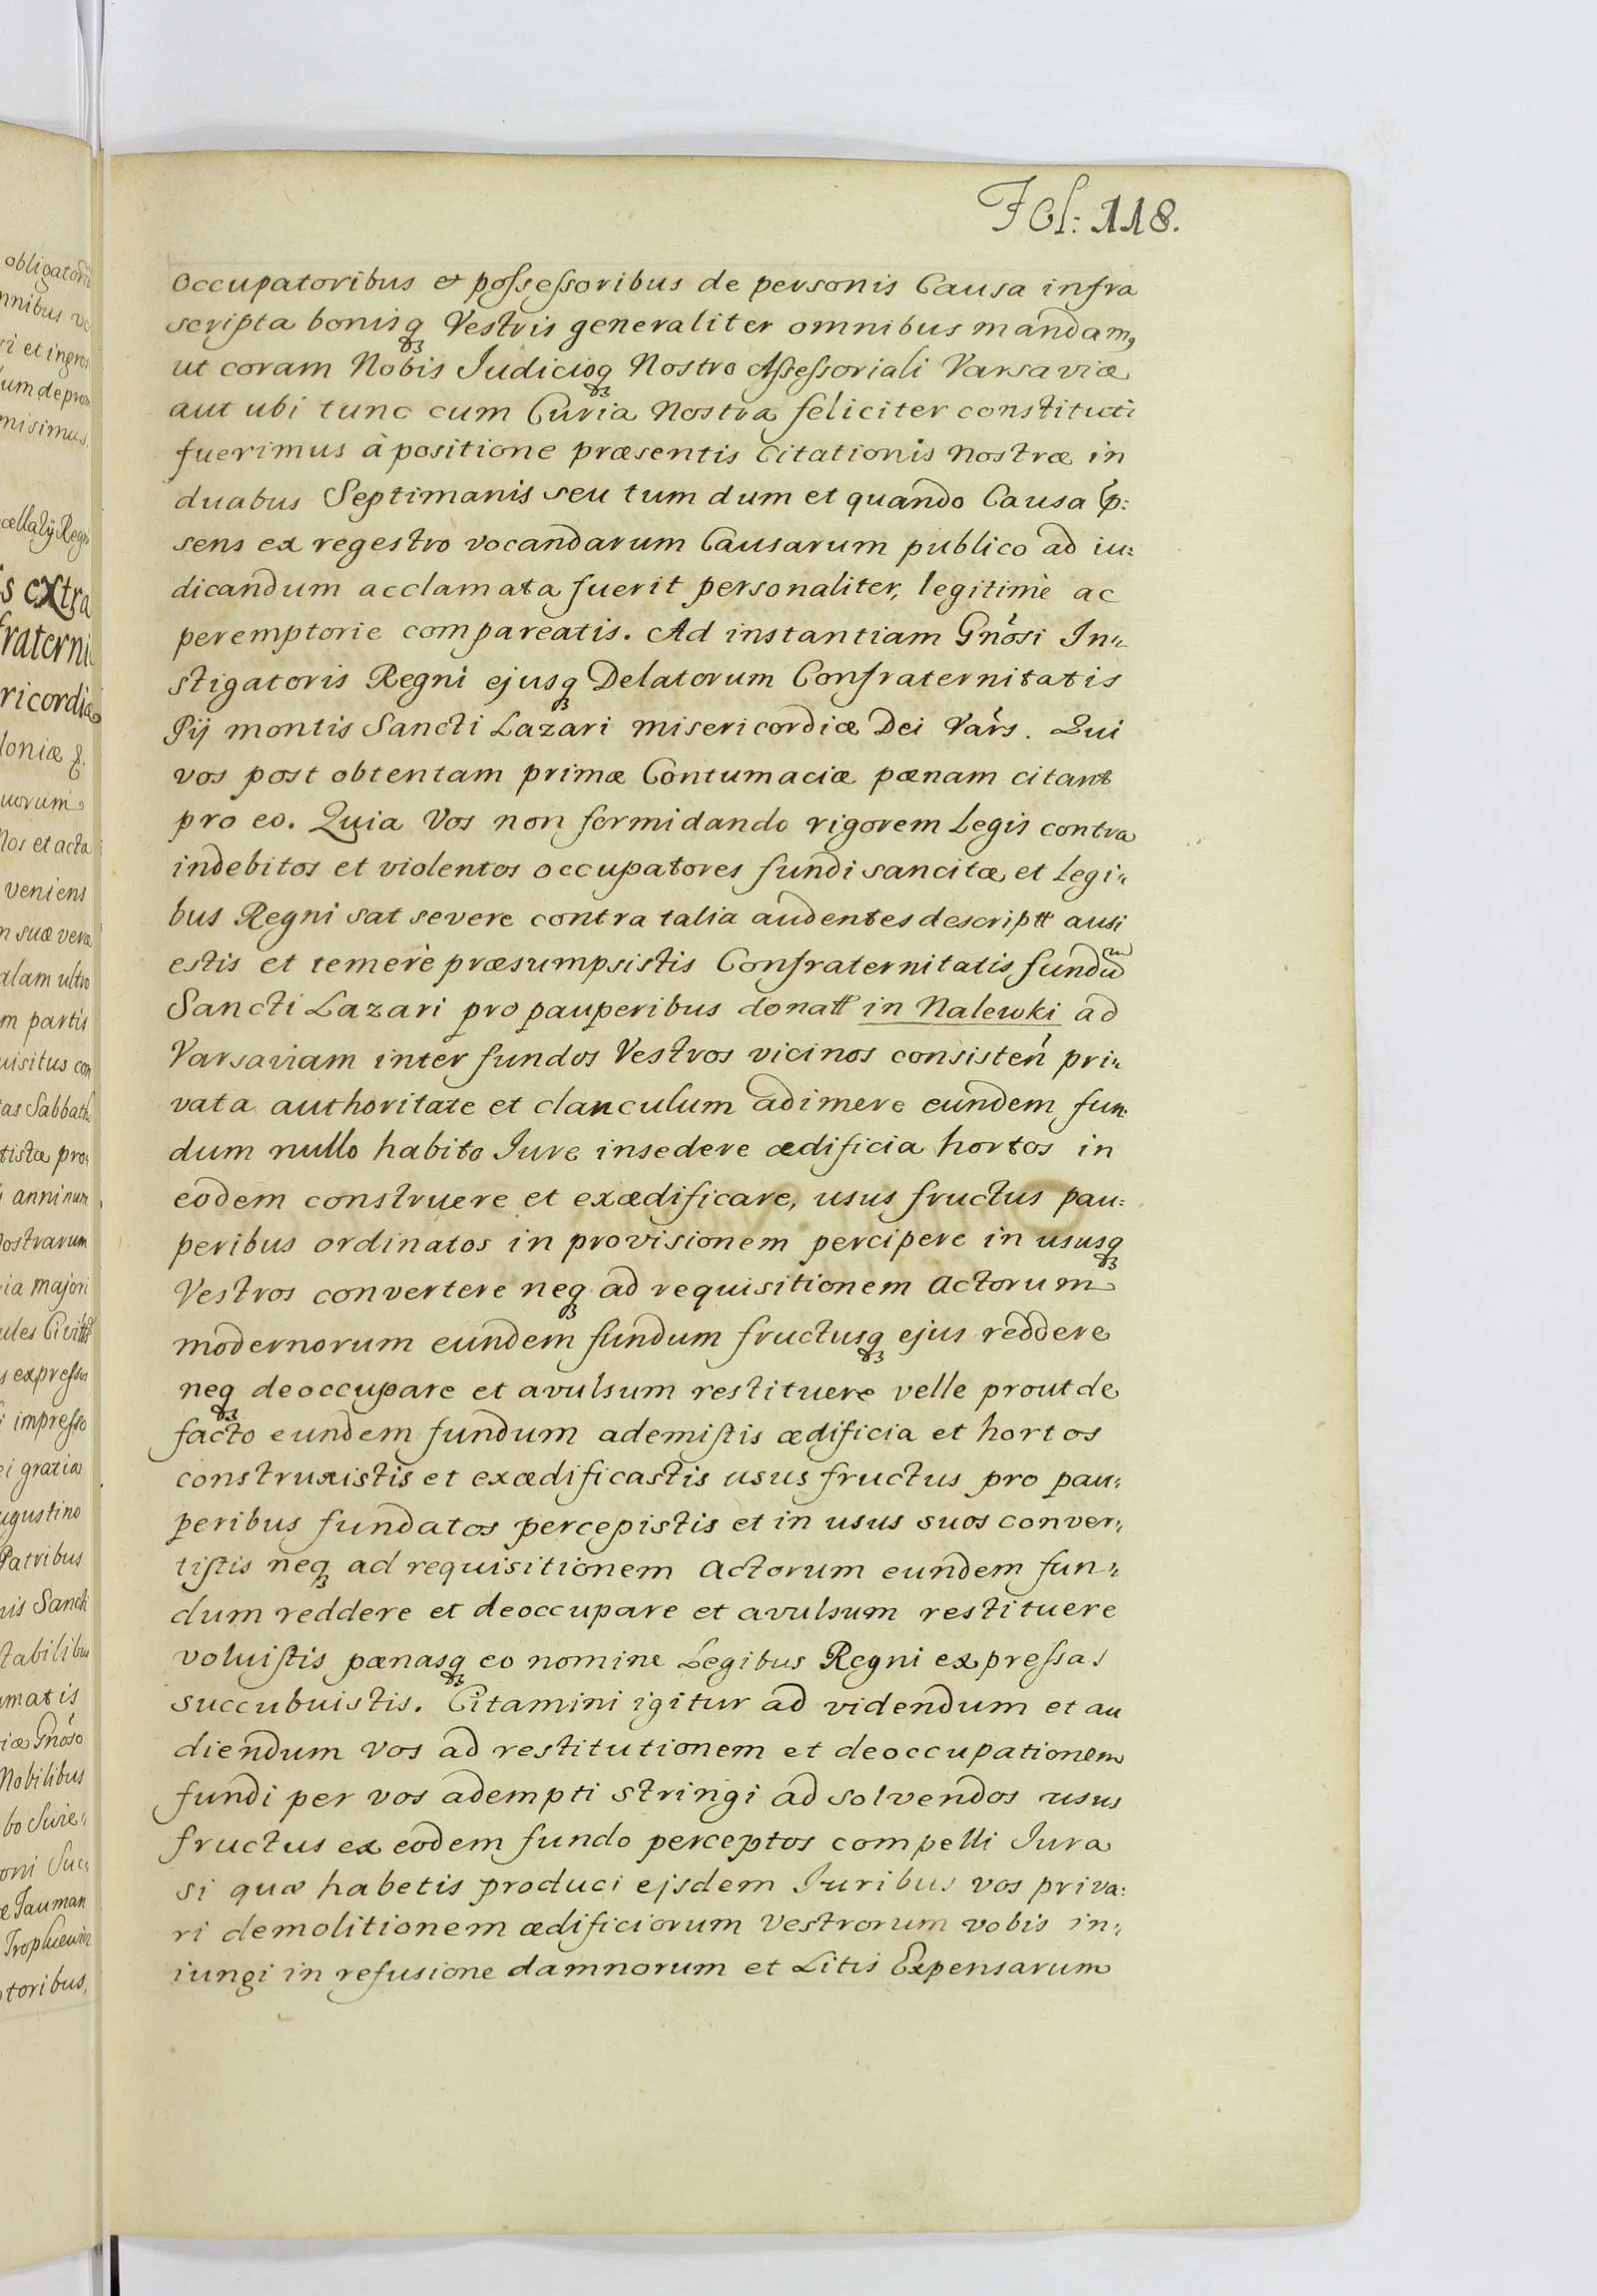 Fol: 118.
occupatoribus & possessoribus de personis Causa infra
scripta bonisq3 Vestris generaliter omnibus mandam9
ut coram Nobis Judicioq3 Nostro Assessoriali Varsaviæ
aut ubi tunc cum Curia Nostra feliciter constituti
fuerimus à positione præsentis Citationis Nostræ in
duabus Septimanis seu tum dum et quando Causa p:
sens ex regestro vocandarum Causarum publico ad iu:
dicandum acclamata fuerit personaliter, legitimè ac
peremptorie compareatis. Ad instantiam Gnosi In:
stigatoris Regni ejusq3 Delatorum Confraternitatis
Pij montis Sancti Lazari misericordiæ Dei Vars. Qui
vos post obtentam primæ Contumaciæ pœnam citant
pro eo. Quia Vos non formidando rigorem Legis contra
indebitos et violentos occupatores fundi sancitæ et Legi:
bus Regni sat severe contra talia audentes descriptt ausi
estis et temerè præsumpsistis Confraternitatis fundum
Sancti Lazari pro pauperibus donatt in Nalewki ad
Varsaviam inter fundos Vestros vicinos consisten pri:
vata authoritate et clanculum adimere eundem fun:
dum nullo habito Jure insedere ædificia hortos in
eodem construere et exædificare, usus fructus pau:
peribus ordinatos in provisionem percipere in ususq3
Vestros convertere neq3 ad requisitionem Actorum
modernorum eundem fundum fructusq3 ejus reddere
neq3 deoccupare et avulsum restituere velle prout de
facto eundem fundum ademistis ædificia et hortos
construxistis et exædificastis usus fructus pro pau:
peribus fundatos percepistis et in usus suos conver:
tistis neq3 ad requisitionem Actorum eundem fun:
dum reddere et deoccupare et avulsum restituere
voluistis pœnasq3 eo nomine Legibus Regni expressas
succubuistis. Citamini igitur ad videndum et au
diendum vos ad restitutionem et deoccupationem
fundi per vos adempti stringi ad solvendos usus
fructus ex eodem fundo perceptos compelli Jura
si quæ habetis produci ejsdem Juribus vos priva:
ri demolitionem ædificiorum Vestrorum vobis in:
iungi in refusione damnorum et Litis Expensarum